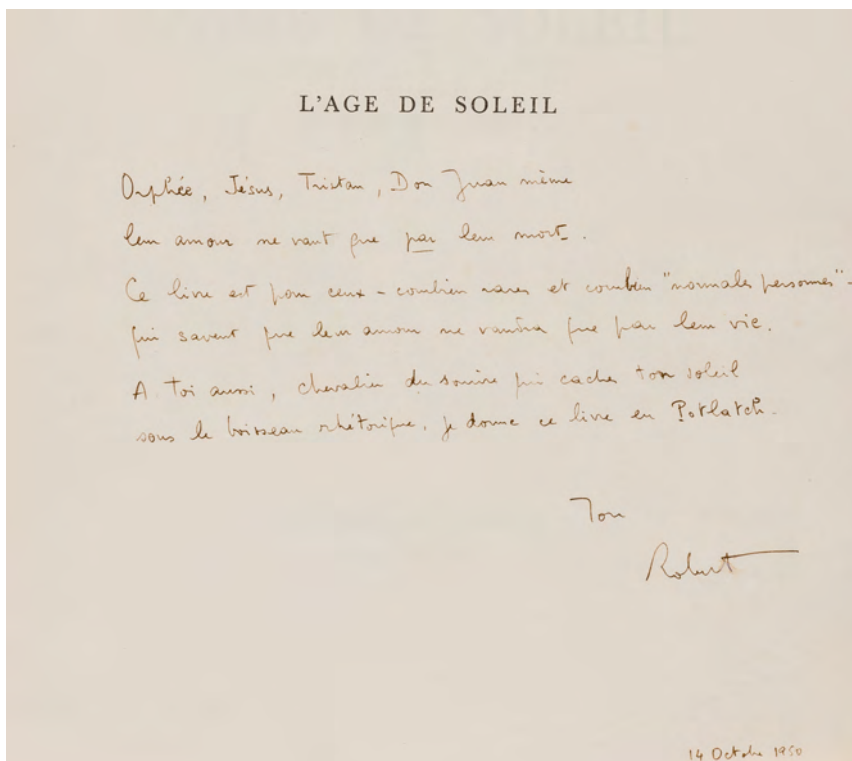 L'AGE DE SOLEIL
Orphée, Jésus, Tristan, Don Juan même
leur amour ne vaut que par leur mort.
Ce livre est pour ceux – combien rares et combien "normales personnes" –
qui savent que leur amour ne vaudra que par leur vie.
A toi aussi, chevalier du sourire qui caches ton soleil
sous le boisseau rhétorique, je donne ce livre en Potlatch.
Ton
Robert
14 Octobre 1950